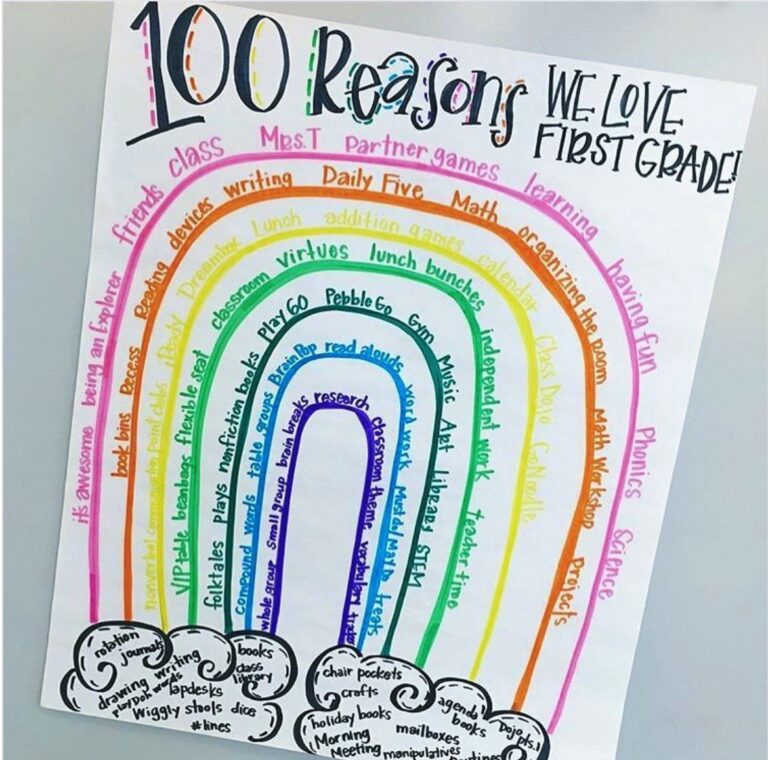 100 Reasons WE LOVE
FIRST GRADE!
its awesome being an Explorer friends class MRS.T partner games learning having fun Phonics Science
book bins Recess Reading devices writing Daily Five Math organizing the room Math Workshop Projects
nonverbal communication point clubs iReady Dreambox Lunch addition games calendar Class Dojo GoNoodle
VIP table beanbags flexible seat classroom virtues lunch bunches independent work teacher time
folktales plays nonfiction books Play 60 Pebble Go Gym Music Art Library STEM
compound words table groups BrainPop read alouds word work Mustdo/MayDo treats
whole group small group brain breaks research classroom theme vocabulary
rotation
journals
drawing writing
playDoh words
lapdesks
Wiggly stools dice
#lines
books
class
library
chair pockets
crafts
holiday books
Morning
Meeting
mailboxes
manipulatives
agenda
books
Dojo pts.!